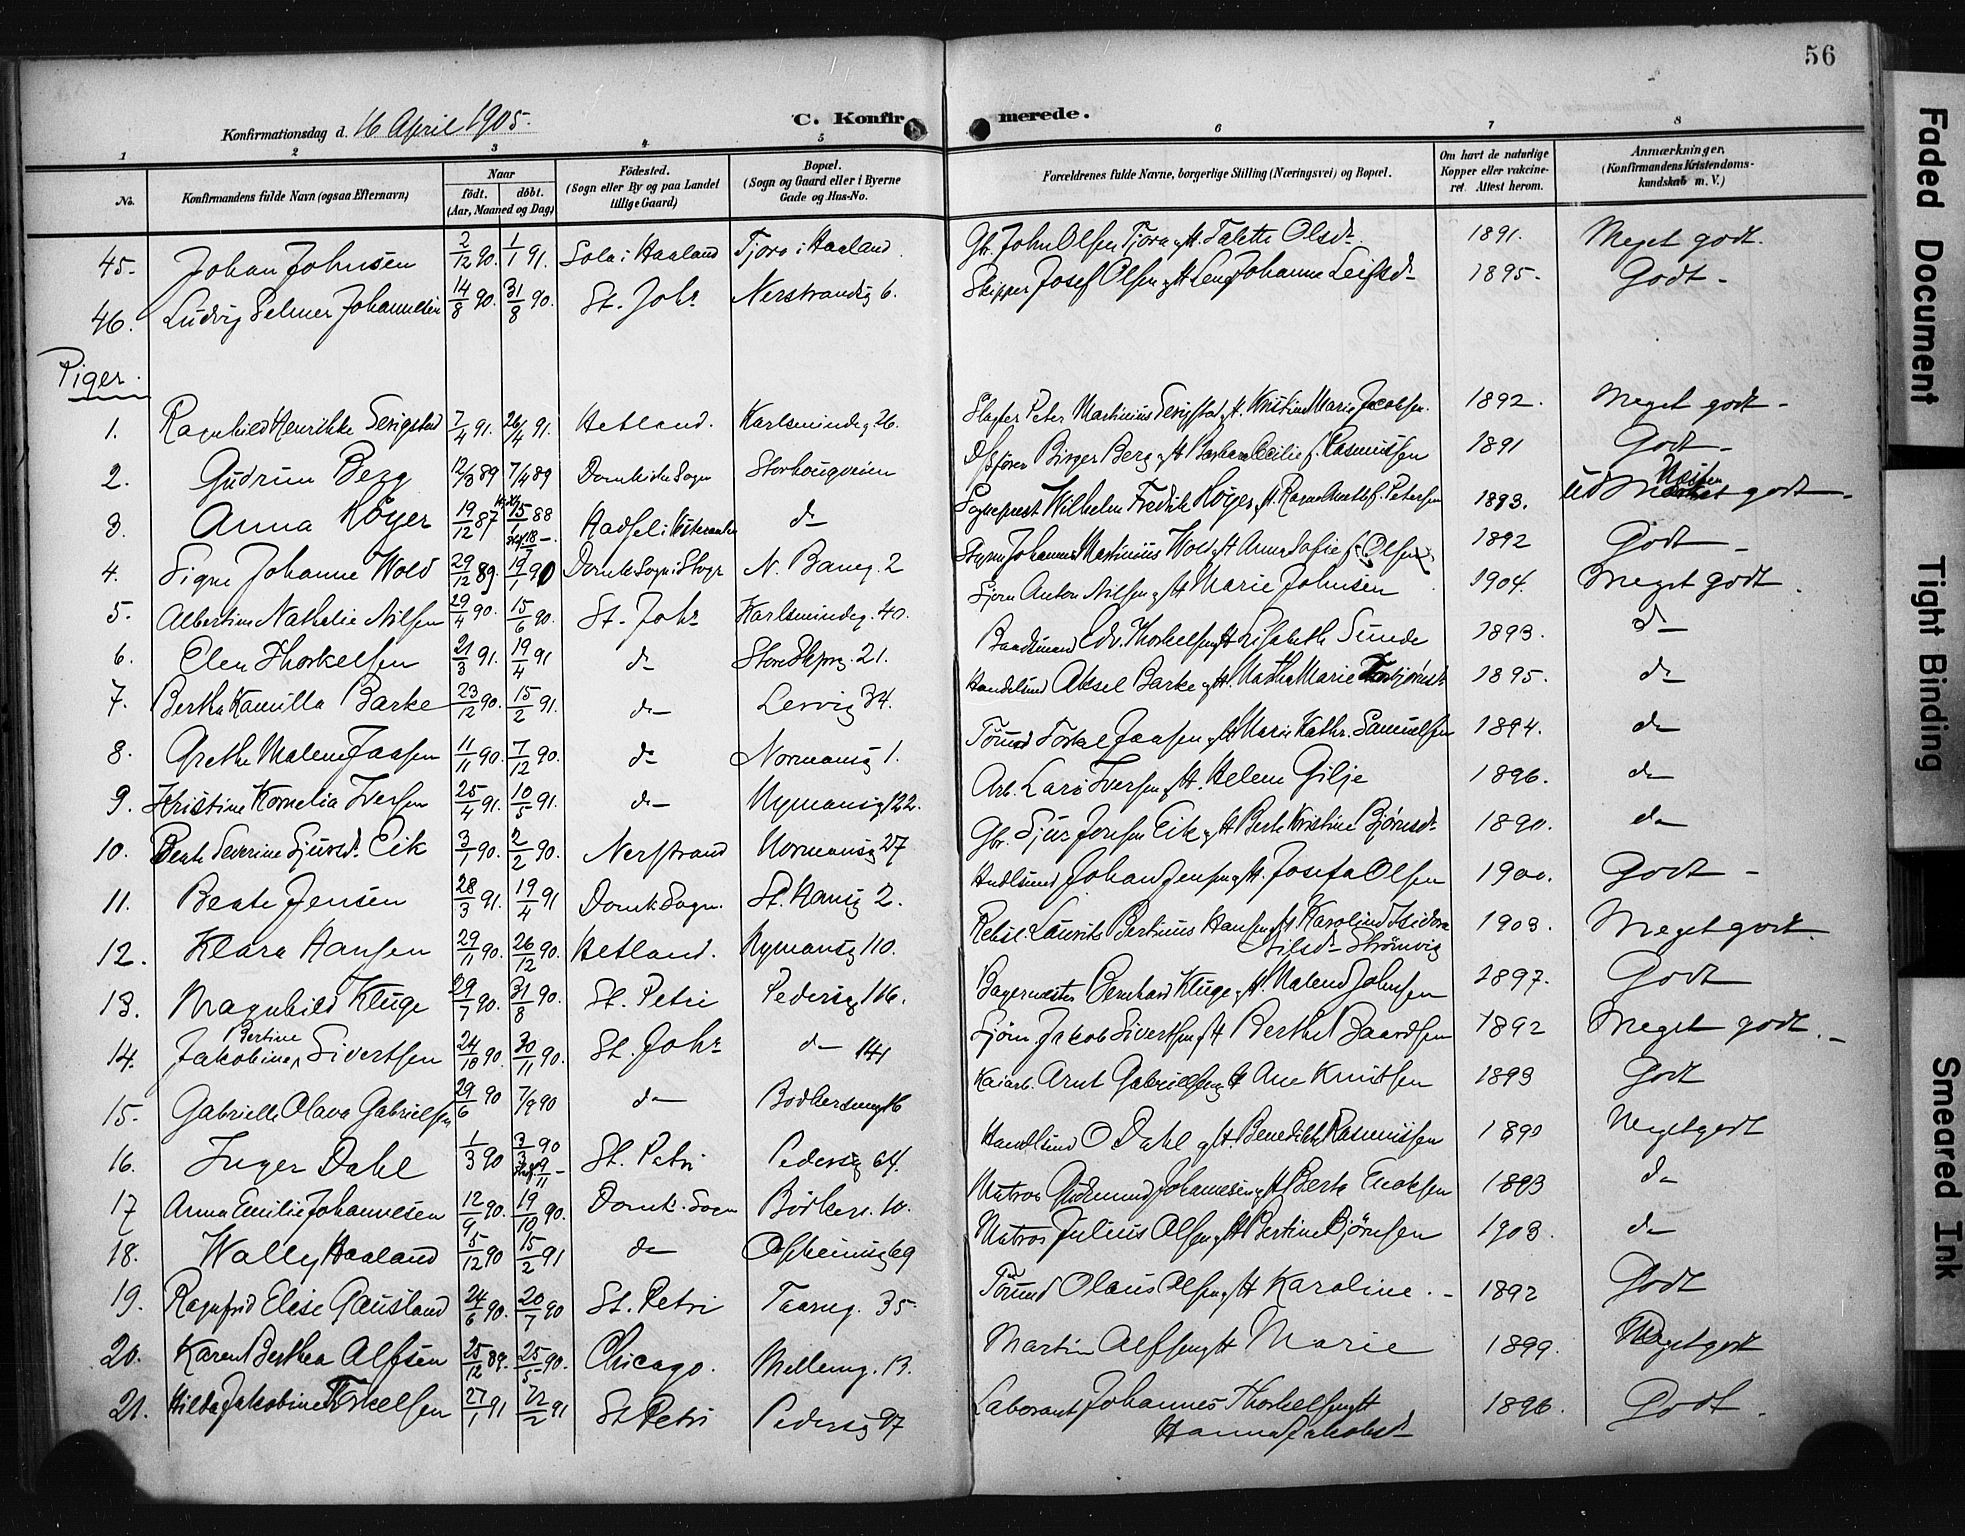 56
Konfirmationsdag d. 16 April 1905. C. Konfirmerede.
1 2 3 4 5 6 7 8
No. Konfirmandens fulde Navn (ogsaa Efternavn) Naar født. døbt. (Aar, Maaned og Dag) Fødested. (Sogn eller By og paa Landet tillige Gaard) Bopæl. (Sogn og Gaard eller i Byerne Gade og Hus-No. Forældrenes fulde Navne, borgerlige Stilling (Næringsvei) og Bopæl. Om havt de naturlige Kopper eller vakcineret. Attest herom. Anmærkninger. (Konfirmandens Kristendomskundskab m. V.)
45. Johan Johnsen 2/12 90. 1/1 91. Sola i Haaland Tjora i Haaland Gbr. John Olsen Tjora og H. Talette Olsdr. 1891. Meget godt.
46. Ludvig Selmer Johannesen 14/8 90. 31/8 90. St. Johs Nerstrandsg 6. Skipper Josef Olsen og H Lena Johanne Leifsdr 1895. Godt -
Piger.
1. Ragnhild Henrikke Serigstad 7/4 91. 26/4 91. Hetland. Karlsmindeg. 26. Slagter Peter Martinius Serigstad og H. Kristine Marie Jacobsen. 1892. Meget godt -
2. Gudrun Berg 12/3 89 7/4 89 Domkirke Sogn Storhougveien Birger Berg og H Barbara Cecilie f. Rasmussen 1891 Godt -
3. Anna Høyer 19/12 87 15/1 88 Hadsel i Vesteraalen do Sogneprest Wilhelm Fredrik Høyer og H. f. Petersen 1893. Ud Mærket godt -
4. Signe Johanne Wold 29/12 89. 19/1 90 Domk Sogn i Stvgr N. Baneg. 2 Styrm Johannes Martinius Wold og H Anna Sofie f. (Olsen) 1892 Godt -
5. Albertine Nathalie Nilsen 29/4 90. 15/6 90. St. Johs Karlsmindeg. 40. Sjøm Anton Nilsen og H Marie Johnsen 1904. Meget godt
6. Elen Thorkelsen 21/3 91. 19/4 91 do Store Skipperg. 21. Baadsmand Edv. Thorkelsen og H Elisabeth Sunde 1893. do
7. Bertha Kamilla Barke 23/12 90. 15/2 91. do Lervig 34. Handelsmd Aksel Barke og H. Martha Marie Torbjørnsdr 1895. do
8. Grethe Malene Jaasen 11/11 90. 7/12 90. do Normansg 1. Tømmd Torkel Jaasen og H Marie Kathr. Samuelsen 1894. do
9. Kristine Kornelia Iversen 25/4 91. 10/5 91. do Nymansg 122. Arb. Lars Iversen og H. Helene Gilje 1896. do
10. Berte Severine Sjursdr. Eik 3/1 90. 2/2 90. Nerstrand Normansg 27 Gbr. Sjur Jonsen Eik og H Berte Kristine Bjørnsdr 1890. do
11. Beate Jensen 28/3 91. 19/4 91 Domk. Sogn. St. Hansg 2. Hndlsmd Johan Jensen og H. Josefa Olsen 1900. Godt -
12. Klara Hansen 29/11 90. 26/12 90. Hetland. Nymansg 110. Rebsl. Laurits Bertinus Hansen og H Karoline Isidora Nilsdr Strømvig 1903. Meget godt.
13. Magnhild Kluge 29/7 90. 31/8 90. St. Petri Pedersg 116. Bagermester Bernhard Kluge og H. Malene Johnsen 1897. Godt
14. Jakobine Bertine Sivertsen 24/10 90. 30/11 90. St. Johs do 141 Sjøm Jakob Sivertsen og H Berthe Baardsen 1892 Meget godt.
15. Gabrielle Olava Gabrielsen 29/6 90 7/9 90 do Bødkersmug 16 Kaiarb. Arnt Gabrielsen og H Ane Knutsen 1893 Godt
16. Inger Dahl 1/3 90 3/3 90 9/11 St. Petri Pedersg 64. Handlsmd O Dahl og H Benedikte Rasmussen 1890 Meget godt
17 Anna Emilie Johannesen 12/9 90. 19/10 90. Domk. Sogn Bødkers. 10. Matros Gudmund Johannesen og H Berte Enoksen 1893 do
18. Wally Haaland 5/12 90 15/2 91 do Asheimsg 69 Matros Julius Olsen og H Bertine Bjørnsen 1903. do
19. Ragnfrid Elise Gausland 24/6 90. 20/7 90 St. Petri Taarng. 35 Tømmd Olaus Olsen og H Karoline. - 1892 Godt
20. Karen Berthea Alfsen 25/12 89. 25/5 90. Chicago. Mellemg. 13. Martin Alfsen og H Marie 1899. Meget godt
21. Hilda Jakobine Torkelsen 27/1 91 22/2 91 St Petri Pedersg 97 Laborant Johannes Thorkelsen og H Hanna Jakobsdr 1896. Godt.
Faded Document
Tight Binding
Smeared Ink